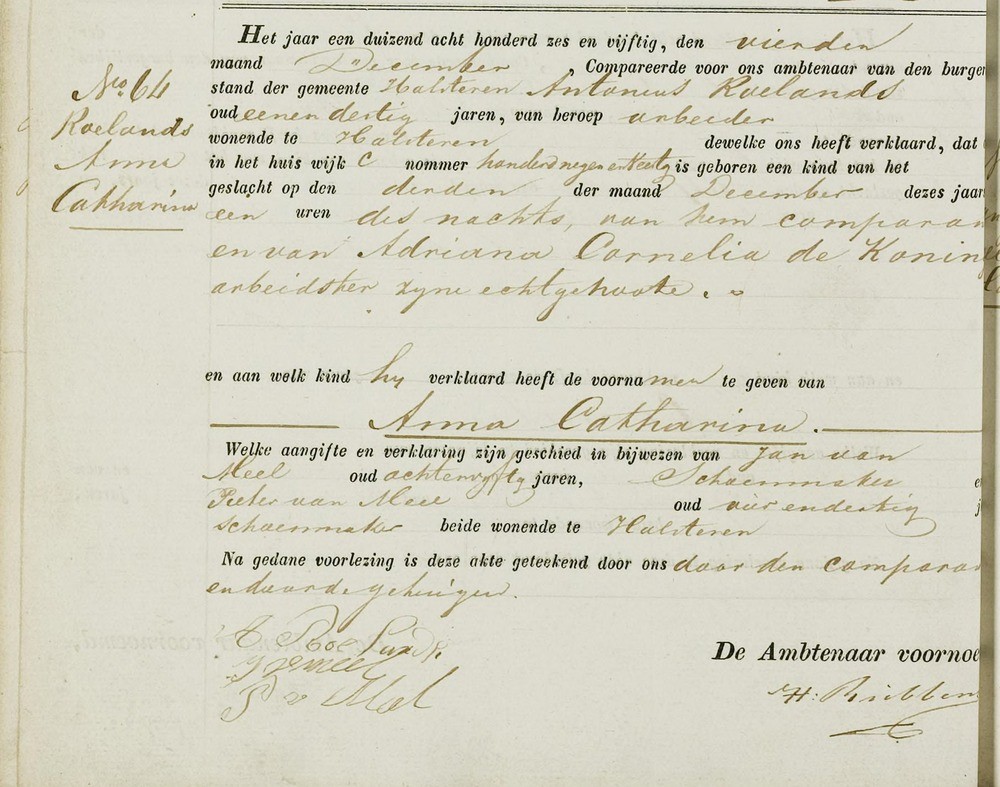 Het jaar een duizend acht honderd zes en vijftig, den vierden
maand December, Compareerde voor ons ambtenaar van den burger
stand der gemeente Halsteren Antonius Roelands
oud eenendertig jaren, van beroep arbeider
wonende te Halsteren dewelke ons heeft verklaard, dat
in het huis wijk C nommer honderdnegen en is geboren een kind van het
geslacht op den derden der maand December dezes jaar
een uren des nachts, van hem comparan
en van Adriana Cornelia de Koning
arbeidster zyne echtgenoote.
No 64
Roelands
Anna
Catharina
en aan welk kind hy verklaard heeft de voornamen te geven van
Anna Catharina.
Welke aangifte en verklaring zijn geschied in bijwezen van Jan van
Meel oud achtenvyftig jaren, Schoenmaker e
Pieter van Meel oud vier endertig j
schoenmaker beide wonende te Halsteren
Na gedane voorlezing is deze akte geteekend door ons door den comparan
en door de getuigen.
A Roelands
J v Meel
P v Meel
De Ambtenaar voornoe
H: